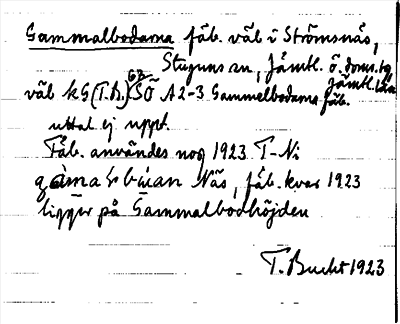 Gammalbodarna fäb. väb i Strömsnäs,
Stuguns sn, Jämtl. ö. doms. tg
Jämtl. län
väb kG (T.B.) 68 SÖ A2-3 Gammelbodarna fäb.
uttal ej uppt.
Fäb. användes nog 1923 T-Ni
Näs, fäb. kvar 1923
ligger på Gammalbodhöjden
T. Bucht 1923